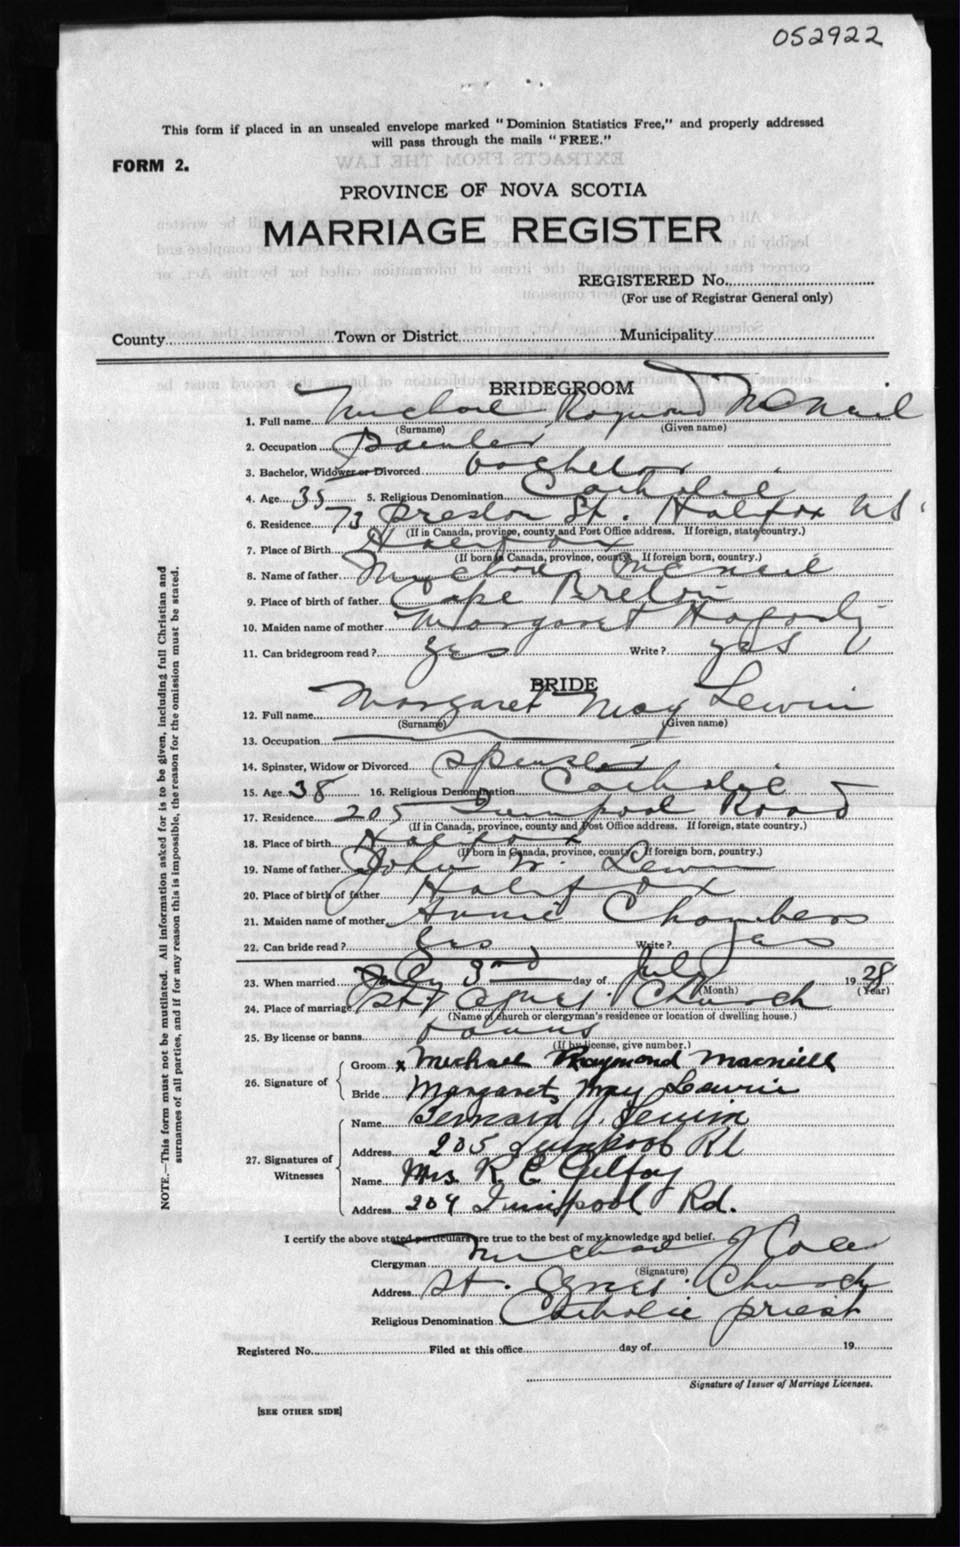 052922
This form if placed in an unsealed envelope marked "Dominion Statistics Free," and properly addressed
will pass through the mails "FREE."
FORM 2.
PROVINCE OF NOVA SCOTIA
MARRIAGE REGISTER
REGISTERED No.
(For use of Registrar General only)
County Town or District Municipality
BRIDEGROOM
1. Full name Michael Raymond McNeil
(Surname) (Given name)
2. Occupation Painter
3. Bachelor, Widower or Divorced bachelor
4. Age 35 5. Religious Denomination Catholic
6. Residence 73 Preston St. Halifax N.S.
(If in Canada, province, county and Post Office address. If foreign, state country.)
7. Place of Birth Halifax
(If born in Canada, province, county. If foreign born, country.)
8. Name of father Michael McNeil
9. Place of birth of father Cape Breton
10. Maiden name of mother Margaret Hagarty
11. Can bridegroom read? yes Write? yes
BRIDE
12. Full name Margaret May Lewin
(Surname) (Given name)
13. Occupation
14. Spinster, Widow or Divorced Spinster
15. Age 38 16. Religious Denomination Catholic
17. Residence 205 Quinpool Road
(If in Canada, province, county and Post Office address. If foreign, state country.)
18. Place of birth Halifax
(If born in Canada, province, county. If foreign born, country.)
19. Name of father John W. Lewin
20. Place of birth of father Halifax
21. Maiden name of mother Annie Chambers
22. Can bride read? yes Write? yes
23. When married 3rd day of July 1928
(Month) (Year)
24. Place of marriage St. Agnes Church
(Name of church or clergyman's residence or location of dwelling house.)
25. By license or banns banns
(If by license, give number.)
26. Signature of Groom x Michael Raymond Macneill
Bride Margaret May Lewin
27. Signatures of Witnesses
Name Bernard J. Lewin
Address 205 Quinpool Rd
Name Mrs. K. E. Gilfoy
Address 204 Quinpool Rd.
I certify the above stated particulars are true to the best of my knowledge and belief.
Clergyman Michael J Cole
(Signature)
Address St. Agnes Church
Religious Denomination Catholic priest
Registered No. Filed at this office day of 19
Signature of Issuer of Marriage Licenses.
[SEE OTHER SIDE]
NOTE.—This form must not be mutilated. All information asked for is to be given, including full Christian and
surnames of all parties, and if for any reason this is impossible, the reason for the omission must be stated.